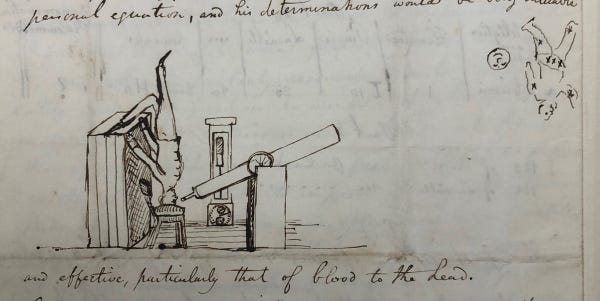 personal equation, and his determinations would be very valuable
and effective, particularly that of blood to the head.